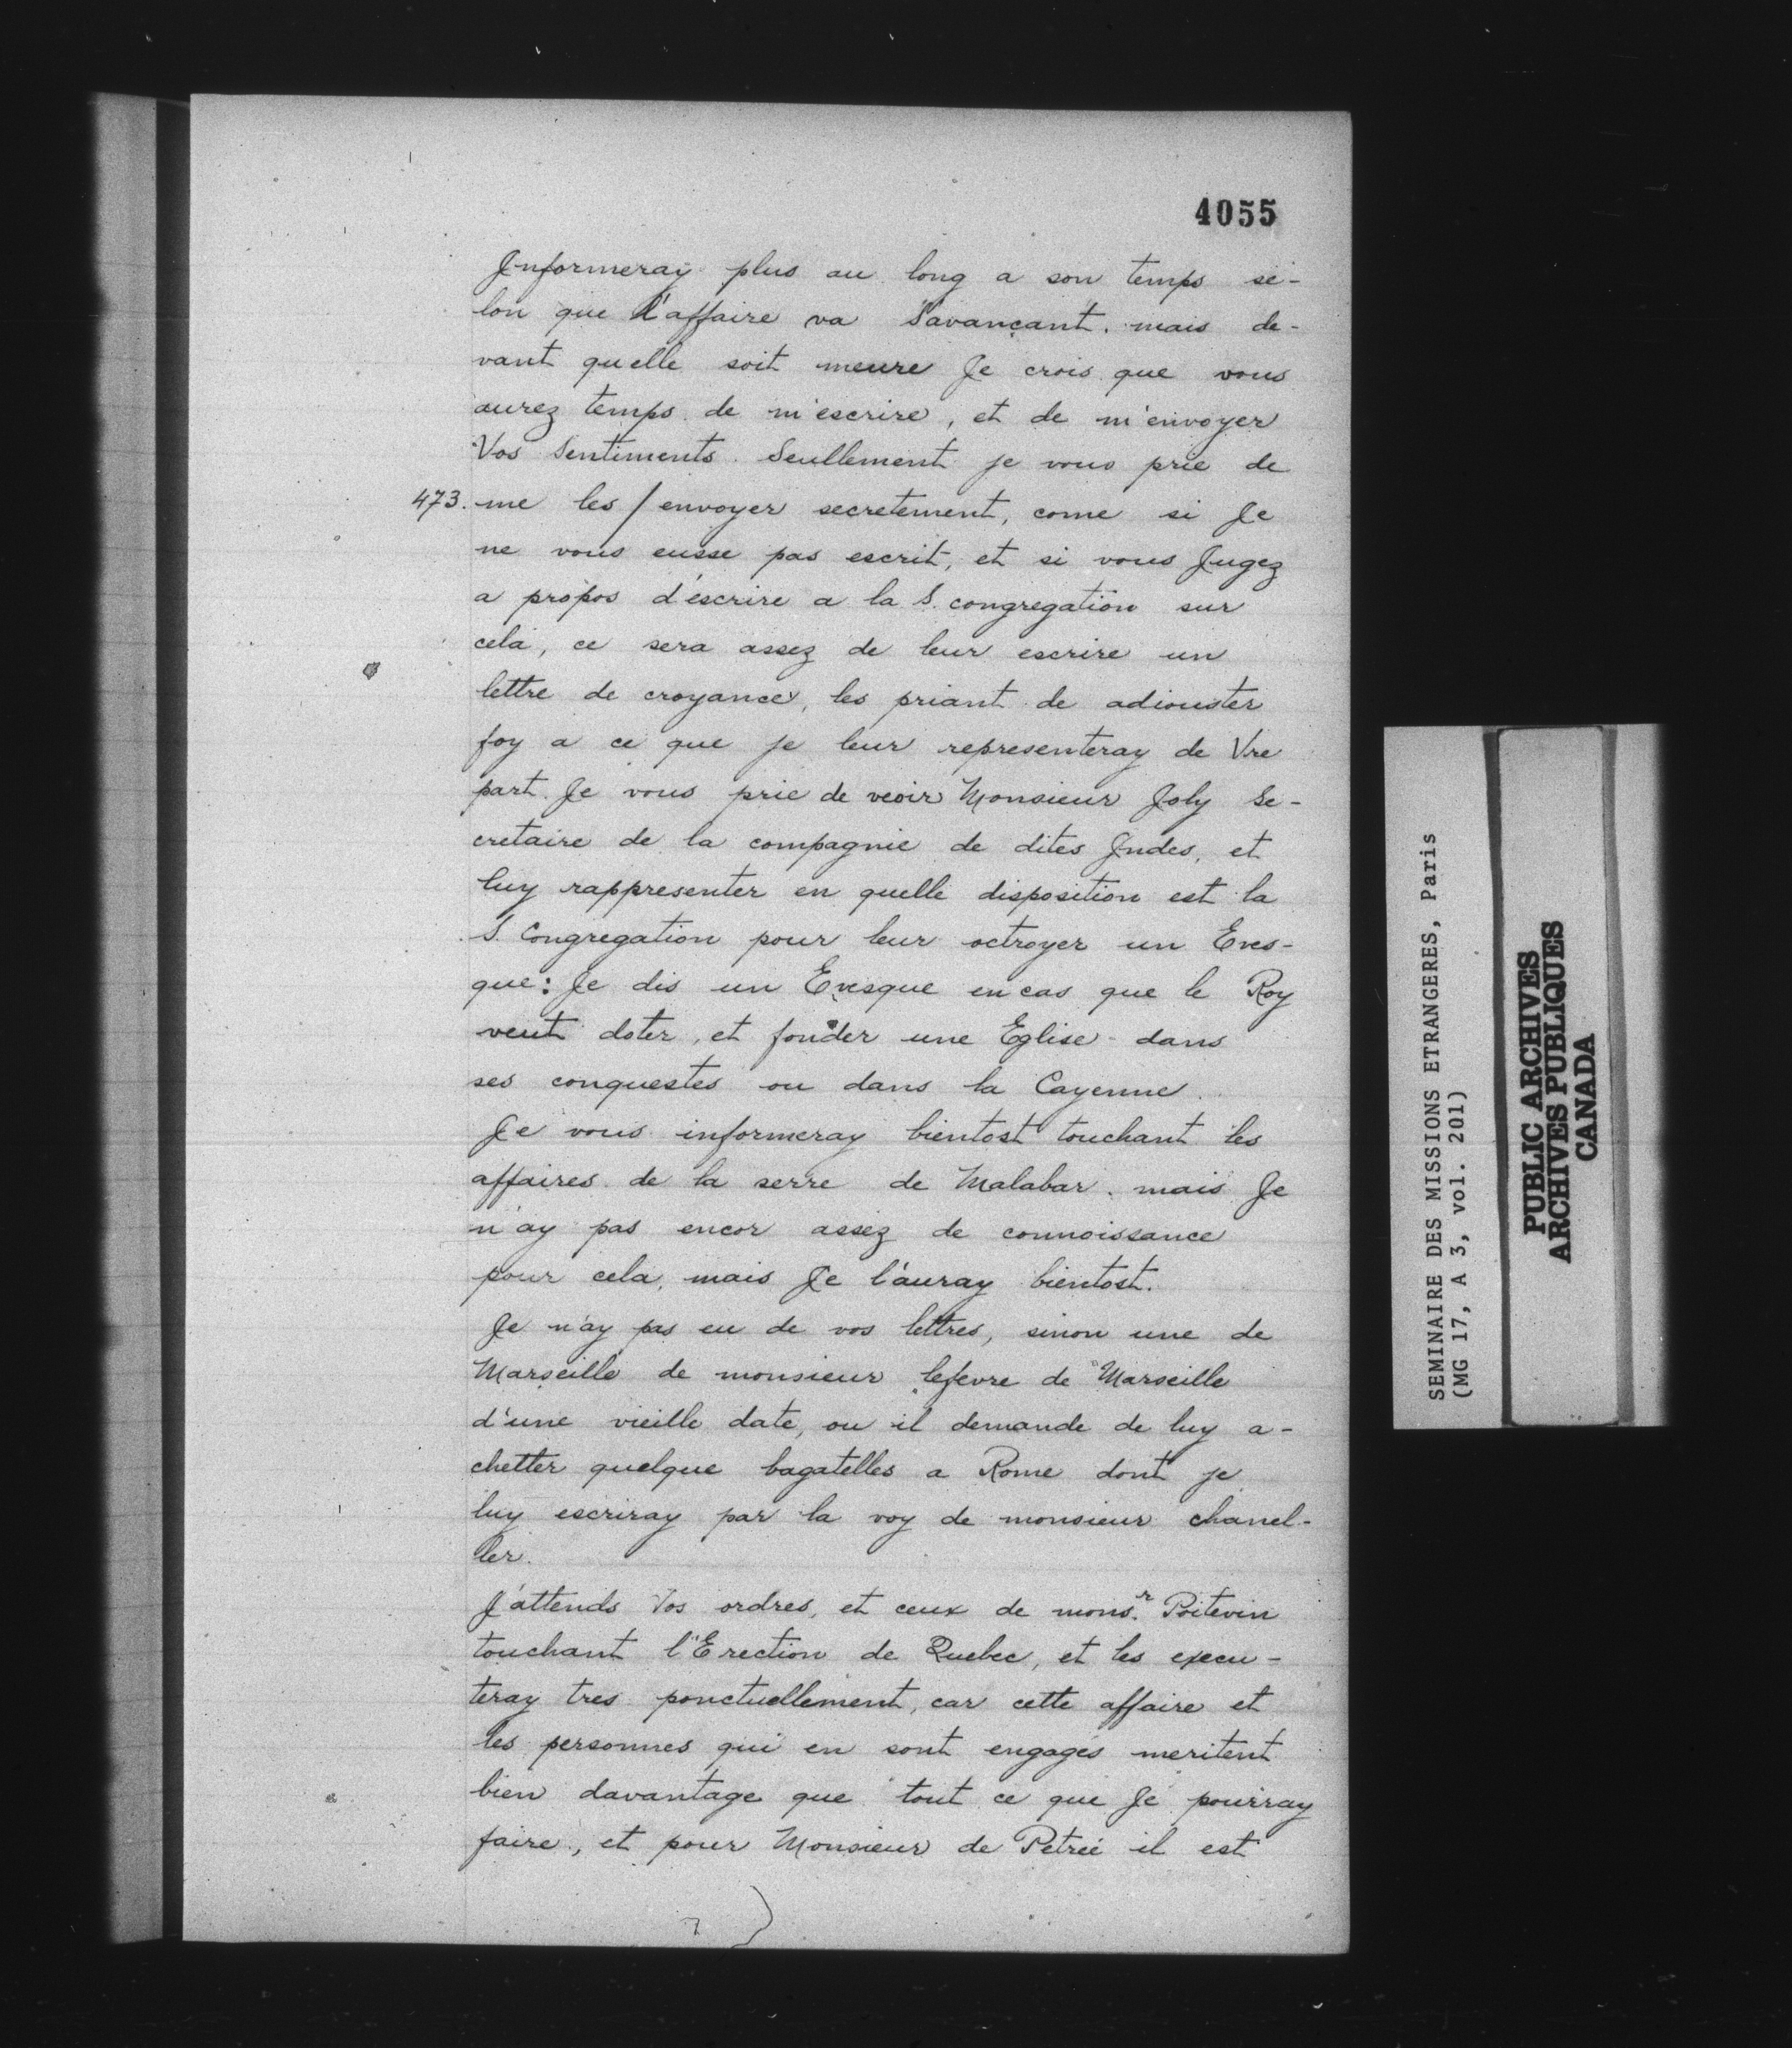 4055
Informeray plus au long a son temps se-
lon que l'affaire va s'avançant. mais de-
vant quelle soit meure Je crois que vous
aurez temps de m'escrire, et de m'envoyer
Vos Sentiments. Seullement je vous prie de
473. me les / envoyer secretement, come si Je
ne vous eusse pas escrit, et si vous Jugez
a propos d'escrire a la S. congregation sur
cela, ce sera assez de leur escrire un
lettre de croyance, les priant de adiouster
foy a ce que je leur representeray de Vre
part. Je vous prie de veoir Monsieur Joly Se-
cretaire de la compagnie de dites Indes, et
luy rappresenter en quelle disposition est la
S. Congregation pour leur octroyer un Eves-
que: Je dis un Evesque en cas que le Roy
veut doter, et fonder une Eglise dans
ses conquestes ou dans la Cayenne.
Je vous informeray bientost touchant les
affaires de la serre de Malabar. mais Je
n'ay pas encor assez de connoissance
pour cela, mais Je l'auray bientost.
Je n'ay pas eu de vos lettres, sinon une de
Marseille de monsieur lefevre de Marseille
d'une vieille date, ou il demande de luy a-
chetter quelque bagatelles a Rome dont je
luy escriray par la voy de monsieur chanel-
ler.
J'attends Vos ordres, et ceux de mons.r Poitevin
touchant l'Erection de Quebec, et les execu-
teray tres ponctuellement, car cette affaire et
les personnes qui en sont engagés meritent
bien davantage que tout ce que Je pourray
faire, et pour Monsieur de Petrée il est
SEMINAIRE DES MISSIONS ETRANGERES, Paris
(MG 17, A 3, vol. 201)
PUBLIC ARCHIVES
ARCHIVES PUBLIQUES
CANADA